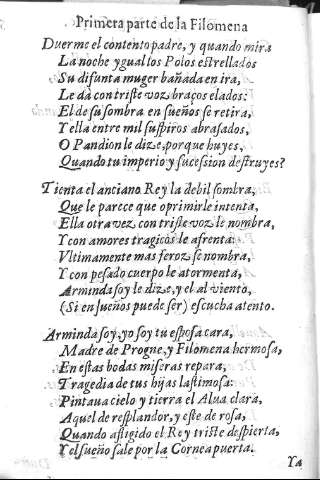 Primera parte de la Filomena
Duerme el contento padre, y quando mira
La noche ygual los Polos estrellados
Su difunta muger bañada en ira,
Le dà con triste voz braços elados:
El de su sombra en sueños se retira,
Y ella entre mil suspiros abrasados,
O Pandion le dize, porque huyes,
Quando tu imperio y sucession destruyes?
Tienta el anciano Rey la debil sombra,
Que le parece que oprimirle intenta,
Ella otra vez con triste voz le nombra,
Y con amores tragicos le afrenta:
Vltimamente mas feroz se nombra,
Y con pesado cuerpo le atormenta,
Arminda soy le dize, y el al viento,
(Si en sueños puede ser) escucha atento.
Arminda soy, yo soy tu esposa cara,
Madre de Progne, y Filomena hermosa,
En estas bodas miseras repara,
Tragedia de tus hijas lastimosa:
Pintaua cielo y tierra el Alua clara,
Aquel de resplandor, y este de rosa,
Quando afligido el Rey triste despierta,
Y el sueño sale por la Cornea puerta.
Ya